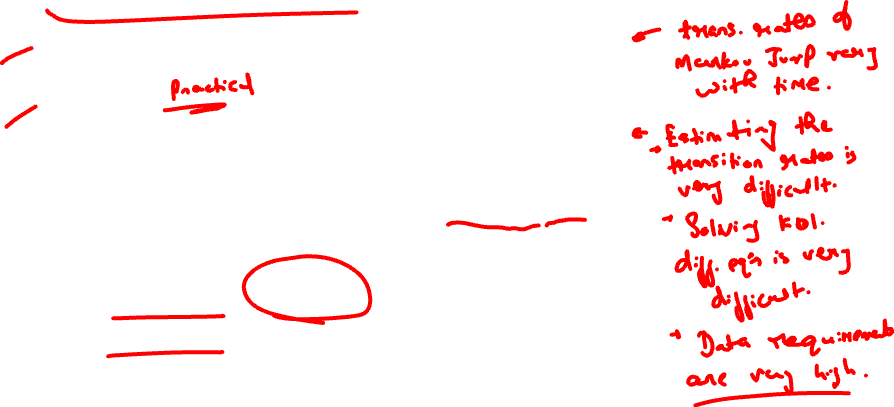 Practical
trans. rates of
Markov Jump vary
with time.
Estimating the
transition rates is
very difficult.
Solving Kol.
diff. eqn is very
difficult.
Data requirements
are very high.